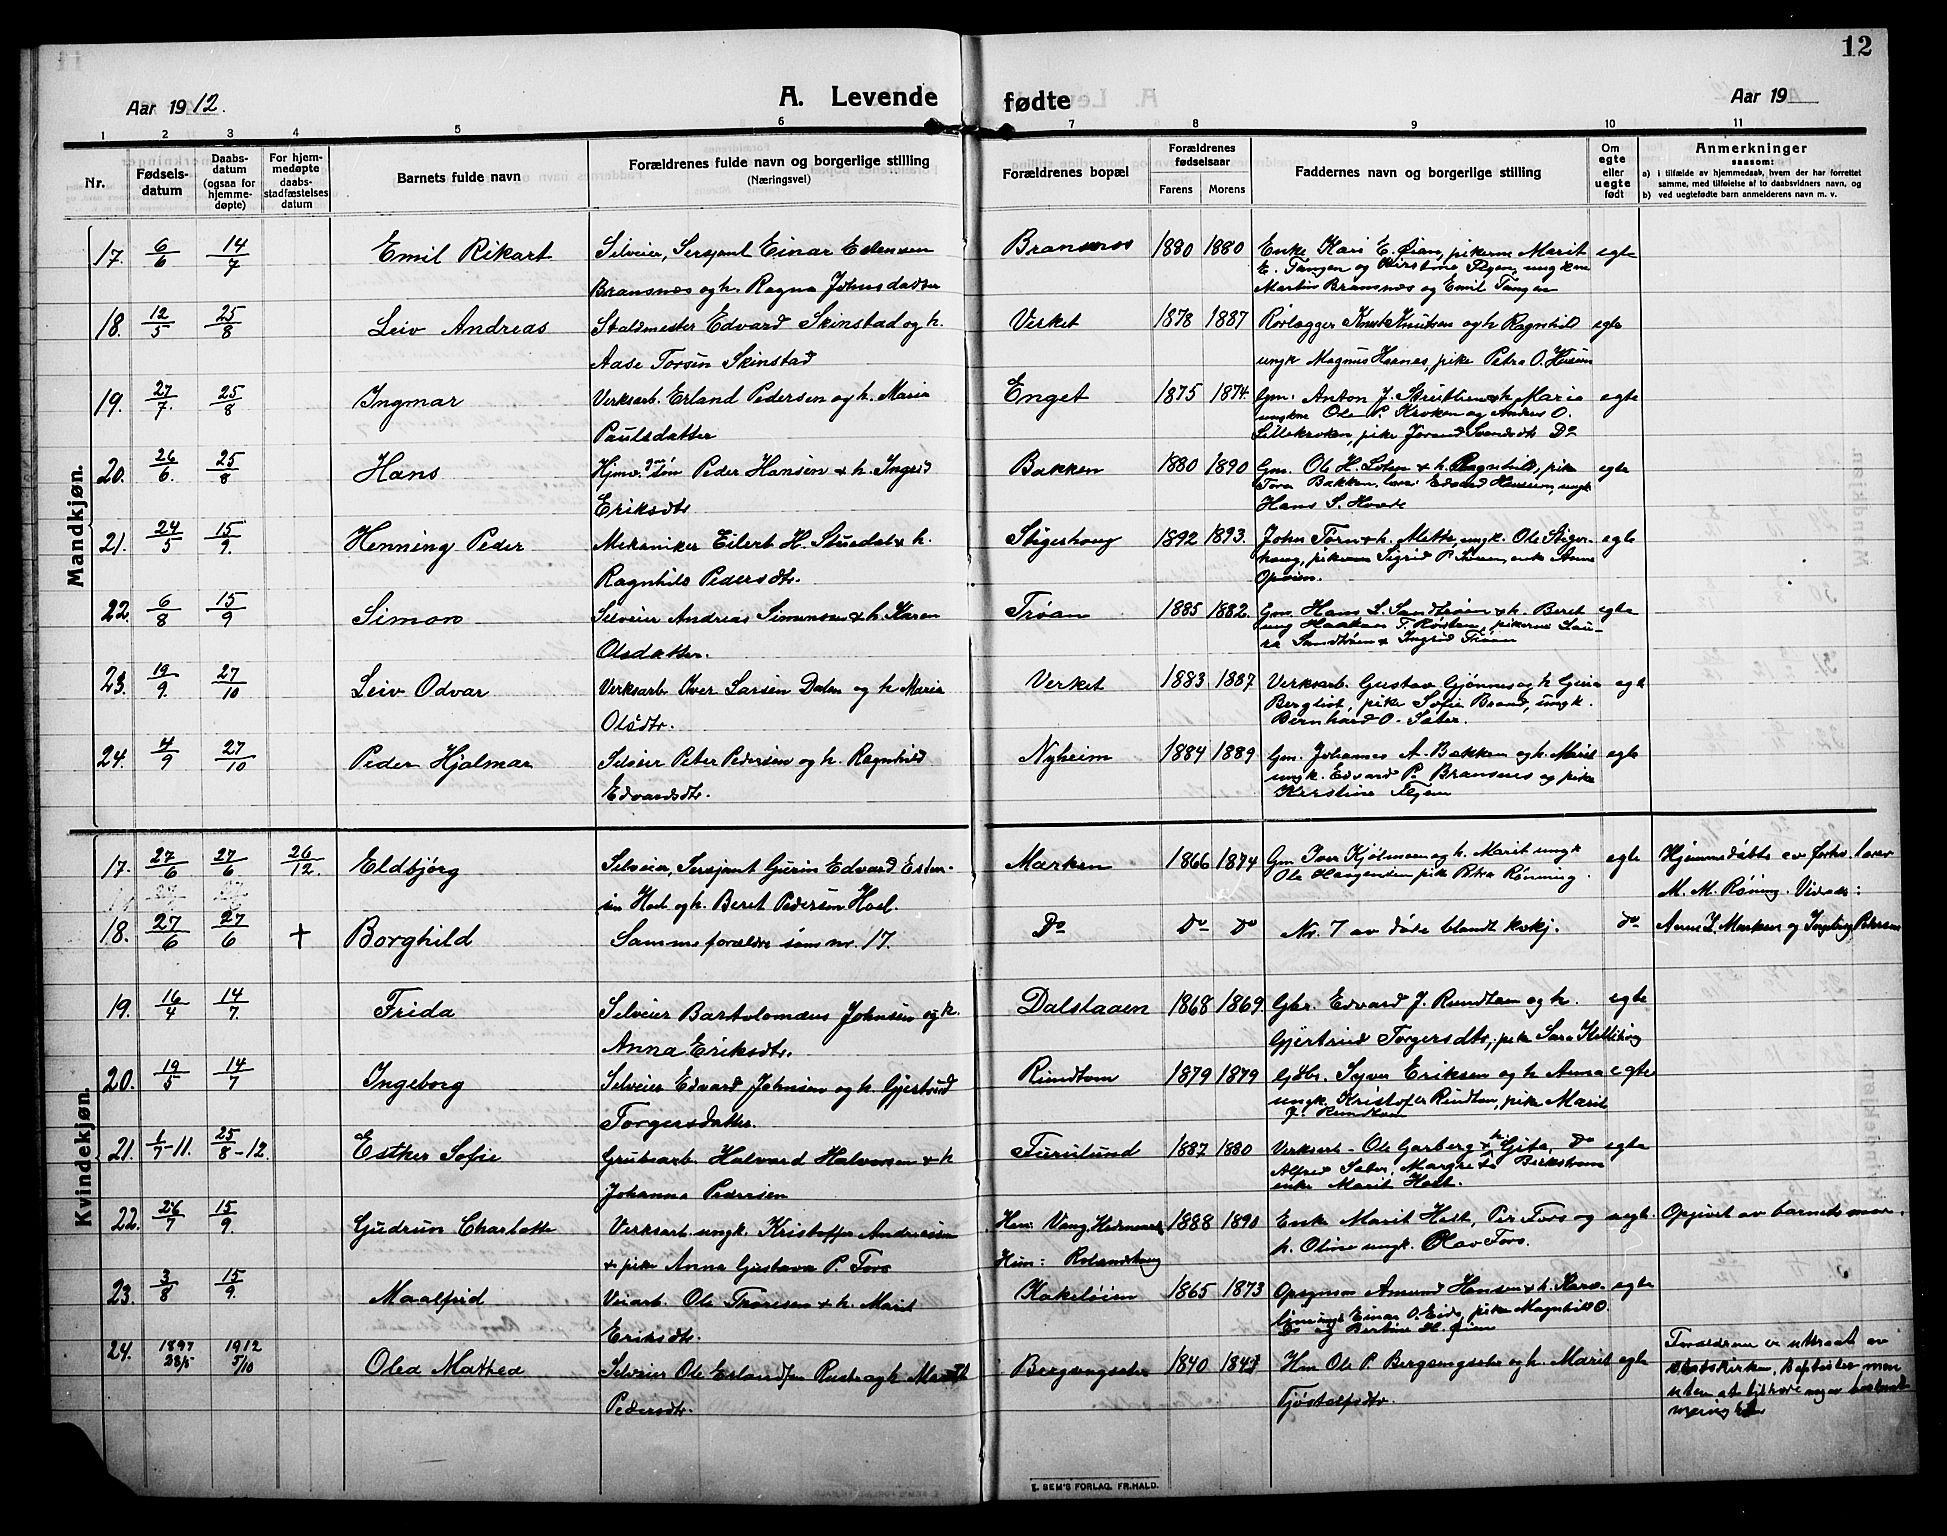 12
Aar 1912.
A. Levende fødte
Aar 19
1 2 3 4 5 6 7 8 9 10 11
Nr.
Fødsels-
datum
Daabs-
datum
(ogsaa for
hjemme-
døpte)
For hjem-
medøpte
daabs-
stadfæstelses
datum
Barnets fulde navn
Forældrenes fulde navn og borgerlige stilling
(Næringsvei)
Forældrenes bopæl
Forældrenes
fødselsaar
Farens Morens
Faddernes navn og borgerlige stilling
Om
egte
eller
uegte
født
Anmerkninger
saasom:
a) i tilfælde av hjemmedaab, hvem der har forrettet
samme, med tilføielse af to daabsvidners navn, og
b) ved uegtefødte barn anmelderens navn m. v.
Mandkjøn.
17. 6/6 14/7 Emil Rikart
Selveier, Sersjant Einar Estensen
Bransnes og h. Ragna Johnsdatter
Bransnes 1880 1880
Enke Kari E. Øian, pikerne Marit
E. Tangen og Kirstine Flgen, ungkne
Martin Bransnes og Emil Tangen
egte
18. 12/5 25/8 Leiv Andreas
Staldmester Edvard Skinstad og h.
Aase Torsen Skinstad
Verket 1878 1887
Rørlægger Knut Knutsen og h Ragnhild
ungk Magnus Hosnes, pike Petra O. Husum
egte
19. 27/7. 25/8 Ingmar
Verksarb. Erland Pedersen og h. Maria
Paulsdatter
Enget 1875 1874.
Gm. Anton J. Strublien & h. Maria
ungkne Ole P. Kroken og Anders O.
Lillekroken, pike Jorand Svendsdtr Do
egte
20. 26/6. 25/8 Hans
Hjmv. søn Peder Hansen & h. Ingrid
Eriksdtr
Bakken 1880 1890
Gm. Ole H. Loten & h. Ragnhild, pike
Tora Bakken, lærer Edvard Hanssen, ungk
Hans S. Hovde
egte
21. 24/5 15/9. Henning Peder
Mekaniker Eilert H. Stuedal & h.
Ragnhild Pedersdtr.
Stigerhaug 1892 1893.
John Torn & h. Mette, ungk. Ole Stiger-
haug, pikerne Sigrid P. enke Anne
egte
22. 6/8 15/9 Simon
Selveier Andreas Simensen & h. Karen
Olsdatter.
Trøan 1885 1882.
Gm. Hans L. Sandtrøen & h. Beret
ung Haaken T. Røsten, pikerne Lau-
ra Sandtrøen & Ingrid Trøan
egte
23. 19/9. 27/10 Leiv Odvar
Verksarb. Iver Larsen Dalen og h Maria
Olsdtr.
Verket 1883 1887
Verksarb. Gustav Gjønnes og h Guria
Bergliot, pike Sofie Brand, ungk.
Bernhard O. Sæter.
egte
24. 4/9 27/10 Peder Hjalmar
Selveier Peter Pedersen og h. Ragnhild
Edvardsdtr.
Nyheim 1884 1889
Gm. Johannes A. Bakken og h. Marit
ungk. Edvard P. Bransnes og pike
Kirstine Flgen
egte
Kvindekjøn.
17. 27/6 27/6 26/12. Eldbjørg
Selveier Sersjant Gurin Edvard Esten-
sen Hoel og h. Beret Pedersen Hoel.
Marken 1866 1874
Gm Iver Kjølmoen og h. Marit ungk
Ole Haagensen pike Petra Rønning.
egte
Hjemmedøbt av forhv. lærer
M. M. Røning. Vidner:
18. 27/6 27/6 + Borghild
Samme forældre som nr. 17.
Do Do Do
Nr. 7 av døde blandt kvkj.
do
Anne L. Marken og Ingeborg Petersen
19. 16/4 14/7. Frida
Selveier Bartolomæus Johnsen og h.
Anna Eriksdtr.
Dalslaaen 1868 1869.
Gbr. Edvard J. Rundtom og h.
Gjertrud Torgersdtr, pike Sara Kletthaug
egte
20. 19/5 14/7 Ingeborg
Selveier Edvard Johnsen og h. Gjertrud
Torgersdatter.
Rundtom 1879 1879
Gdbr. Syver Eriksen og h Anna
ungk. Kristofer Rundtom, pike Marit
J. Rundtom
egte
21. 1/7-11. 25/8-12. Esther Sofie
Grubearb. Halvard Halvorsen & h
Johanna Pedersen
Furulund 1887 1880
Verksarb. Ole Garberg & h Gjeta, Do
Alfred Sæter, Margrete Birkstrøm
enke Marit Holt.
egte
22. 26/7 15/9. Gudrun Charlotte
Verksarb. ungk. Kristoffer Andreassen
& pike Anna Gustava P. Fors
Han: Vang, Hedemark
Hun: Rolandhaug
1888 1890
Enke Marit Holt, Per Fors og
h. Oline ungk. Olav Fors.
uegte
Opgivet av barnets mor.
23. 3/8 15/9. Maalfrid
Veiarb. Ole Thoresen & h. Marit
Eriksdtr.
Kakeløien 1865 1873
Opsynsm Amund Hansen & h. Karo-
line, ungk Einar O. Eide, pike Magnhild O.
Do og Bertine H. Øien
egte
24. 1897 28/5 1912 5/10 Olea Mathea
Selveier Ole Erlandsen Rusten og h Marit
Pedersdtr.
Bergsengseter 1840 1841
Hm Ole P. Bergsengseter og h. Marit
Tjøstolfsdtr.
egte
Forældrene er uttraat av
statskirken, Baptister men
uten at tilhøre nogen bestemt
menighet
E. SEM'S FORLAG. FR.HALD.